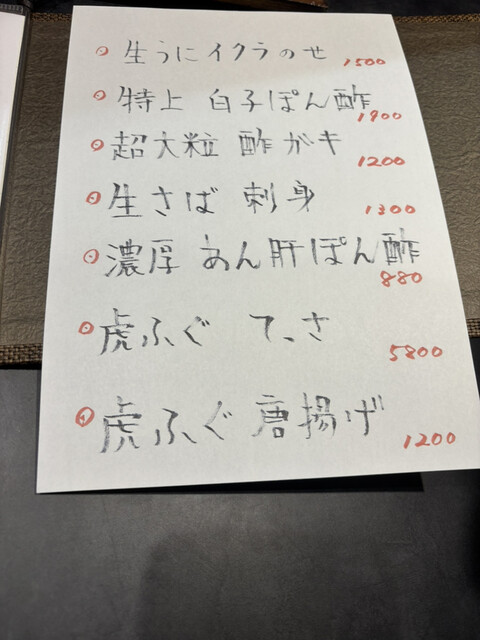 生うにイクラのせ 1500
特上 白子ぽん酢 1900
超大粒 酢ガキ 1200
生さば 刺身 1300
濃厚 あん肝ぽん酢 880
虎ふぐ てっさ 5800
虎ふぐ 唐揚げ 1200